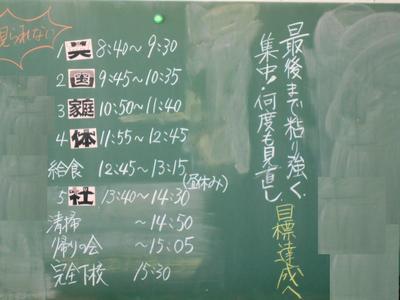 見られない
1 英 8:40～9:30
2 国 9:45～10:35
3 家庭 10:50～11:40
4 体 11:55～12:45
給食 12:45～13:15
(昼休み)
5 社 13:40～14:30
清掃 ～14:50
帰りの会 ～15:05
完全下校 15:30
最後まで粘り強く
集中・何度も見直し
目標達成へ